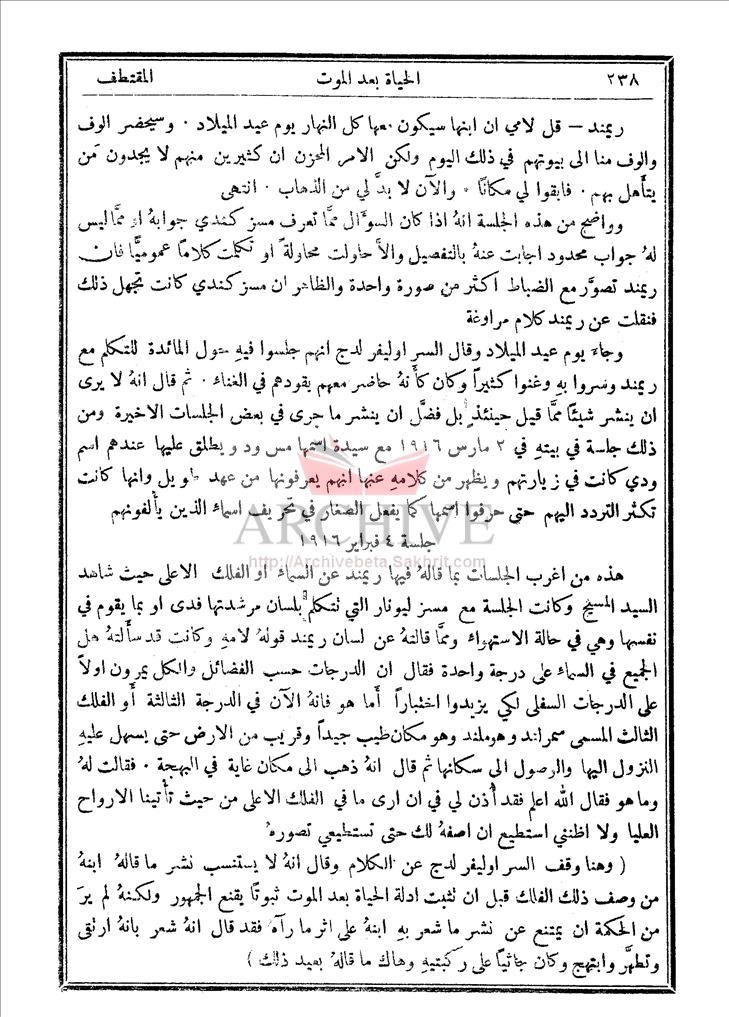 ٢٣٨ الحياة بعد الموت المقتطف
ريمند – قل لامي ان ابنها سيكون معها كل النهار يوم عيد الميلاد . وسيحضر الوف
والوف منا الى بيوتهم في ذلك اليوم ولكن الامر المحزن ان كثيرين منهم لا يجدون مَن
يتأهل بهم . فابقوا لي مكاناً . والآن لا بدَّ لي من الذهاب . انتهى
وواضح من هذه الجلسة انهُ اذا كان السوَّال ممَّا تعرف مسز كندي جوابهُ او ممَّا ليس
لهُ جواب محدود اجابت عنهُ بالتفصيل والاَّ حاولت محاولةً او تكلمت كلاماً عموميًّا فان
ريمند تصوَّر مع الضباط اكثر من صورة واحدة والظاهر ان مسز كندي كانت تجهل ذلك
فنقلت عن ريمند كلام مراوغة
وجاءَ يوم عيد الميلاد وقال السر اوليفر لدج انهم جلسوا فيهِ حول المائدة للتكلم مع
ريمند وسروا بهِ وغنوا كثيراً وكان كأَنهُ حاضر معهم يقودهم في الغناء . ثم قال انهُ لا يرى
ان ينشر شيئاً ممَّا قيل حينئذٍ بل فضَّل ان ينشر ما جرى في بعض الجلسات الاخيرة ومن
ذلك جلسة في بيتهِ في ٣ مارس ١٩١٦ مع سيدة اسمها مس ود ويطلق عليها عندهم اسم
ودي كانت في زيارتهم ويظهر من كلامهِ عنها انهم يعرفونها من عهد طويل وانها كانت
تكثر التردد اليهم حتى حرفوا اسمها كما يفعل الصغار في تحريف اسماء الذين يألفونهم
ARCHIVE
جلسة ٤ فبراير ١٩١٦
http://Archivebeta.Sakhrit.com
هذه من اغرب الجلسات بما قالهُ فيها ريمند عن السماء او الفلك الاعلى حيث شاهد
السيد المسيح وكانت الجلسة مع مسز ليونار التي تتكلم بلسان مرشدتها فدى او بما يقوم في
نفسها وهي في حالة الاستهواء وممَّا قالتهُ عن لسان ريمند قولهُ لامهِ وكانت قد سألتهُ هل
الجميع في السماء على درجة واحدة فقال ان الدرجات حسب الفضائل والكل يمرون اولاً
على الدرجات السفلى لكي يزيدوا اختباراً أما هو فانهُ الآن في الدرجة الثالثة أو الفلك
الثالث المسمى سمراند وهوملند وهو مكان طيب جيداً وقريب من الارض حتى يسهل عليهِ
النزول اليها والوصول الى سكانها ثم قال انهُ ذهب الى مكان غاية في البهجة . فقالت لهُ
وما هو فقال الله اعلم فقد أُذن لي في ان ارى ما في الفلك الاعلى من حيث تأتينا الارواح
العليا ولا اظنني استطيع ان اصفهُ لك حتى تستطيعي تصورهُ
( وهنا وقف السر اوليفر لدج عن الكلام وقال انهُ لا يستنسب نشر ما قالهُ ابنهُ
من وصف ذلك الفلك قبل ان تثبت ادلة الحياة بعد الموت ثبوتاً يقنع الجمهور ولكنهُ لم يرَ
من الحكمة ان يمتنع عن نشر ما شعر بهِ ابنهُ على اثر ما رآه فقد قال انهُ شعر بانهُ ارتقى
وتطهَّر وابتهج وكان جاثياً على ركبتيهِ وهاك ما قالهُ بعيد ذلك )